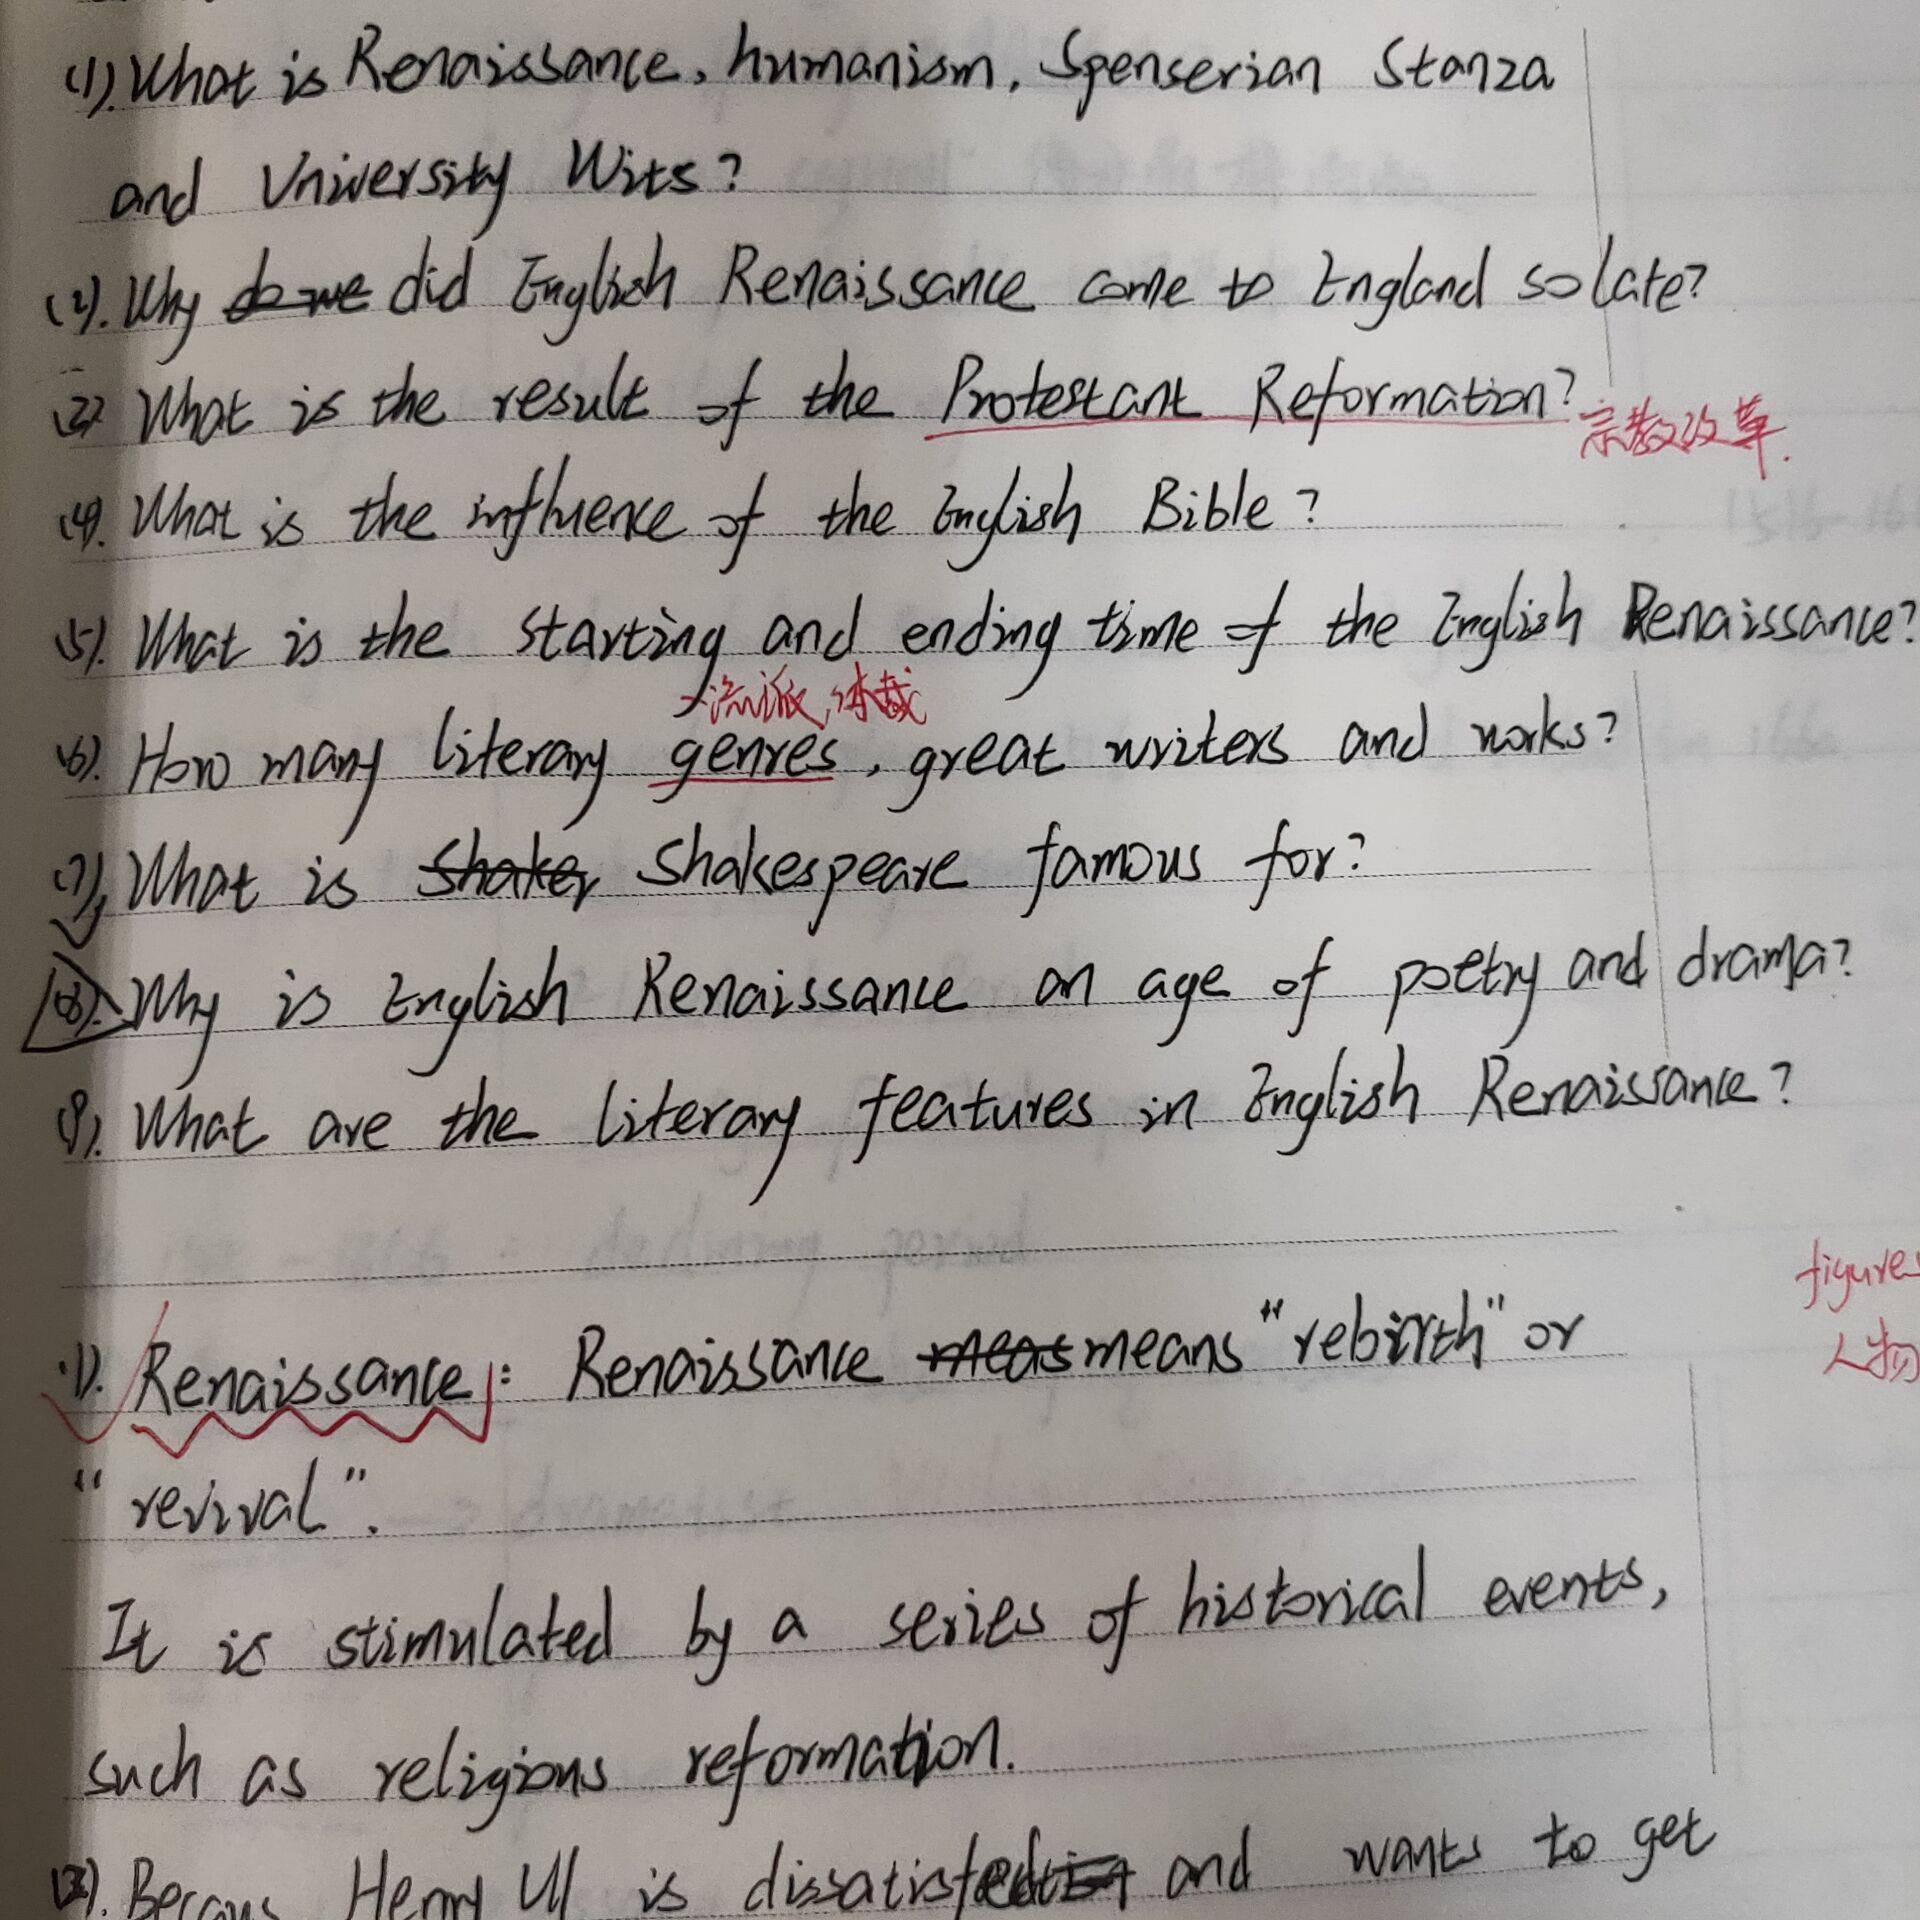 (1). What is Renaissance, humanism, Spenserian Stanza
and University Wits?
(2). Why do we did English Renaissance come to England so late?
(3) What is the result of the Protestant Reformation?
宗教改革.
(4). What is the influence of the English Bible?
(5). What is the starting and ending time of the English Renaissance?
流派,体裁
(6). How many literary genres, great writers and works?
(7). What is Shaker Shakespeare famous for?
(8). Why is English Renaissance an age of poetry and drama?
(9). What are the literary features in English Renaissance?
figures
人物
(1). Renaissance: Renaissance meas means "rebirth" or
"revival".
It is stimulated by a series of historical events,
such as religious reformation.
Henry is and wants to get